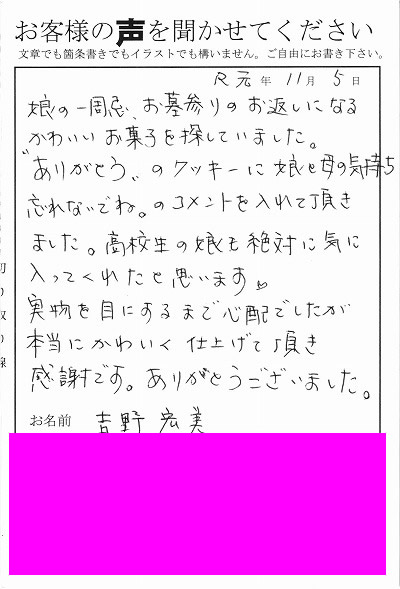 お客様の声を聞かせてください
文章でも箇条書きでもイラストでも構いません。ご自由にお書き下さい。
R元年 11月 5日
娘の一周忌、お墓参りのお返しになる
かわいいお菓子を探していました。
"ありがとう"のクッキーに娘と母の気持ち
忘れないでね。のコメントを入れて頂き
ました。高校生の娘も絶対に気に
入ってくれたと思います
実物を目にするまで心配でしたが
本当にかわいく仕上げて頂き
感謝です。ありがとうございました。
お名前 吉野 宏美
切り取り線